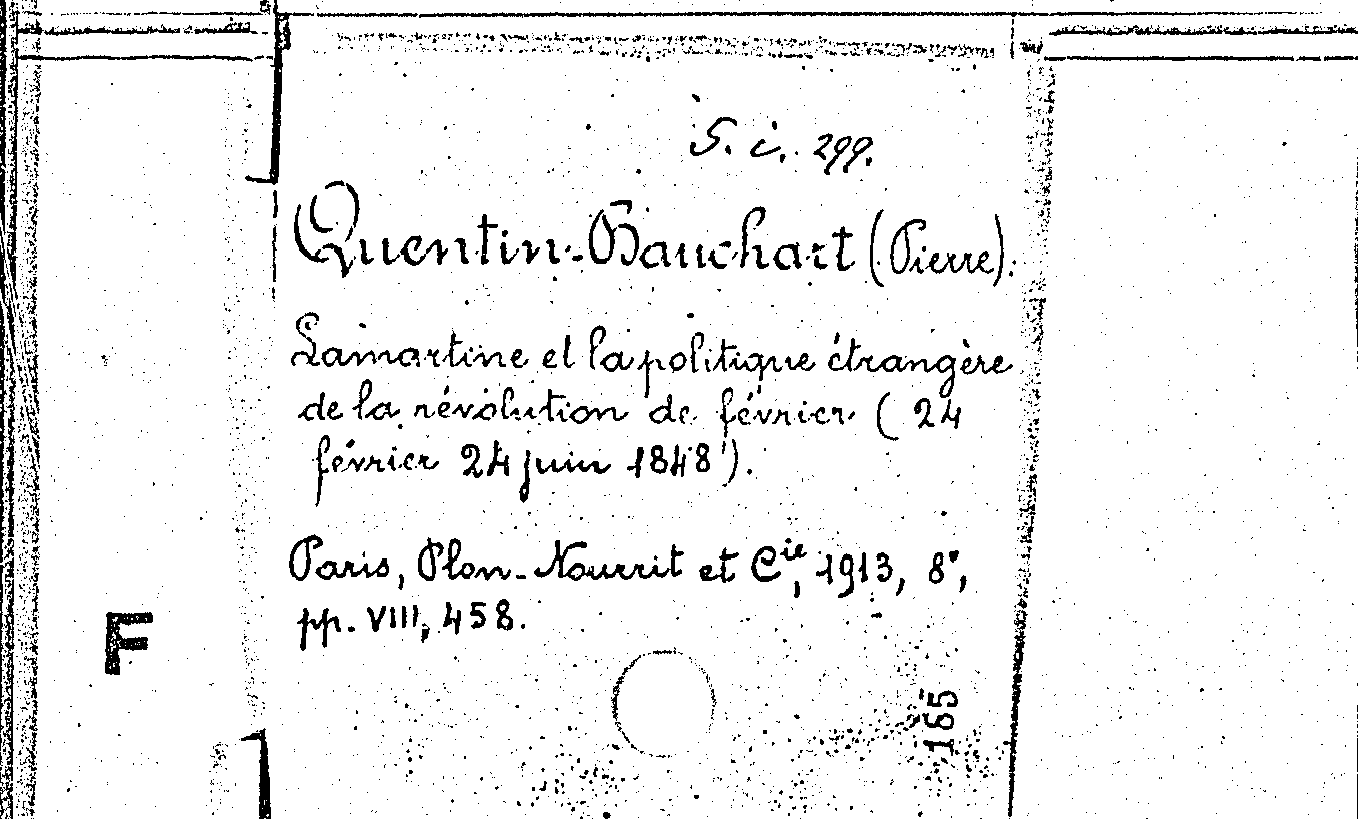 S. i. 299.
Quentin-Bauchart (Pierre).
Lamartine et la politique étrangère
de la révolution de février ( 24
février 24 juin 1848).
Paris, Plon-Nourrit et Cie, 1913, 8°,
pp. VIII, 458.
F
185